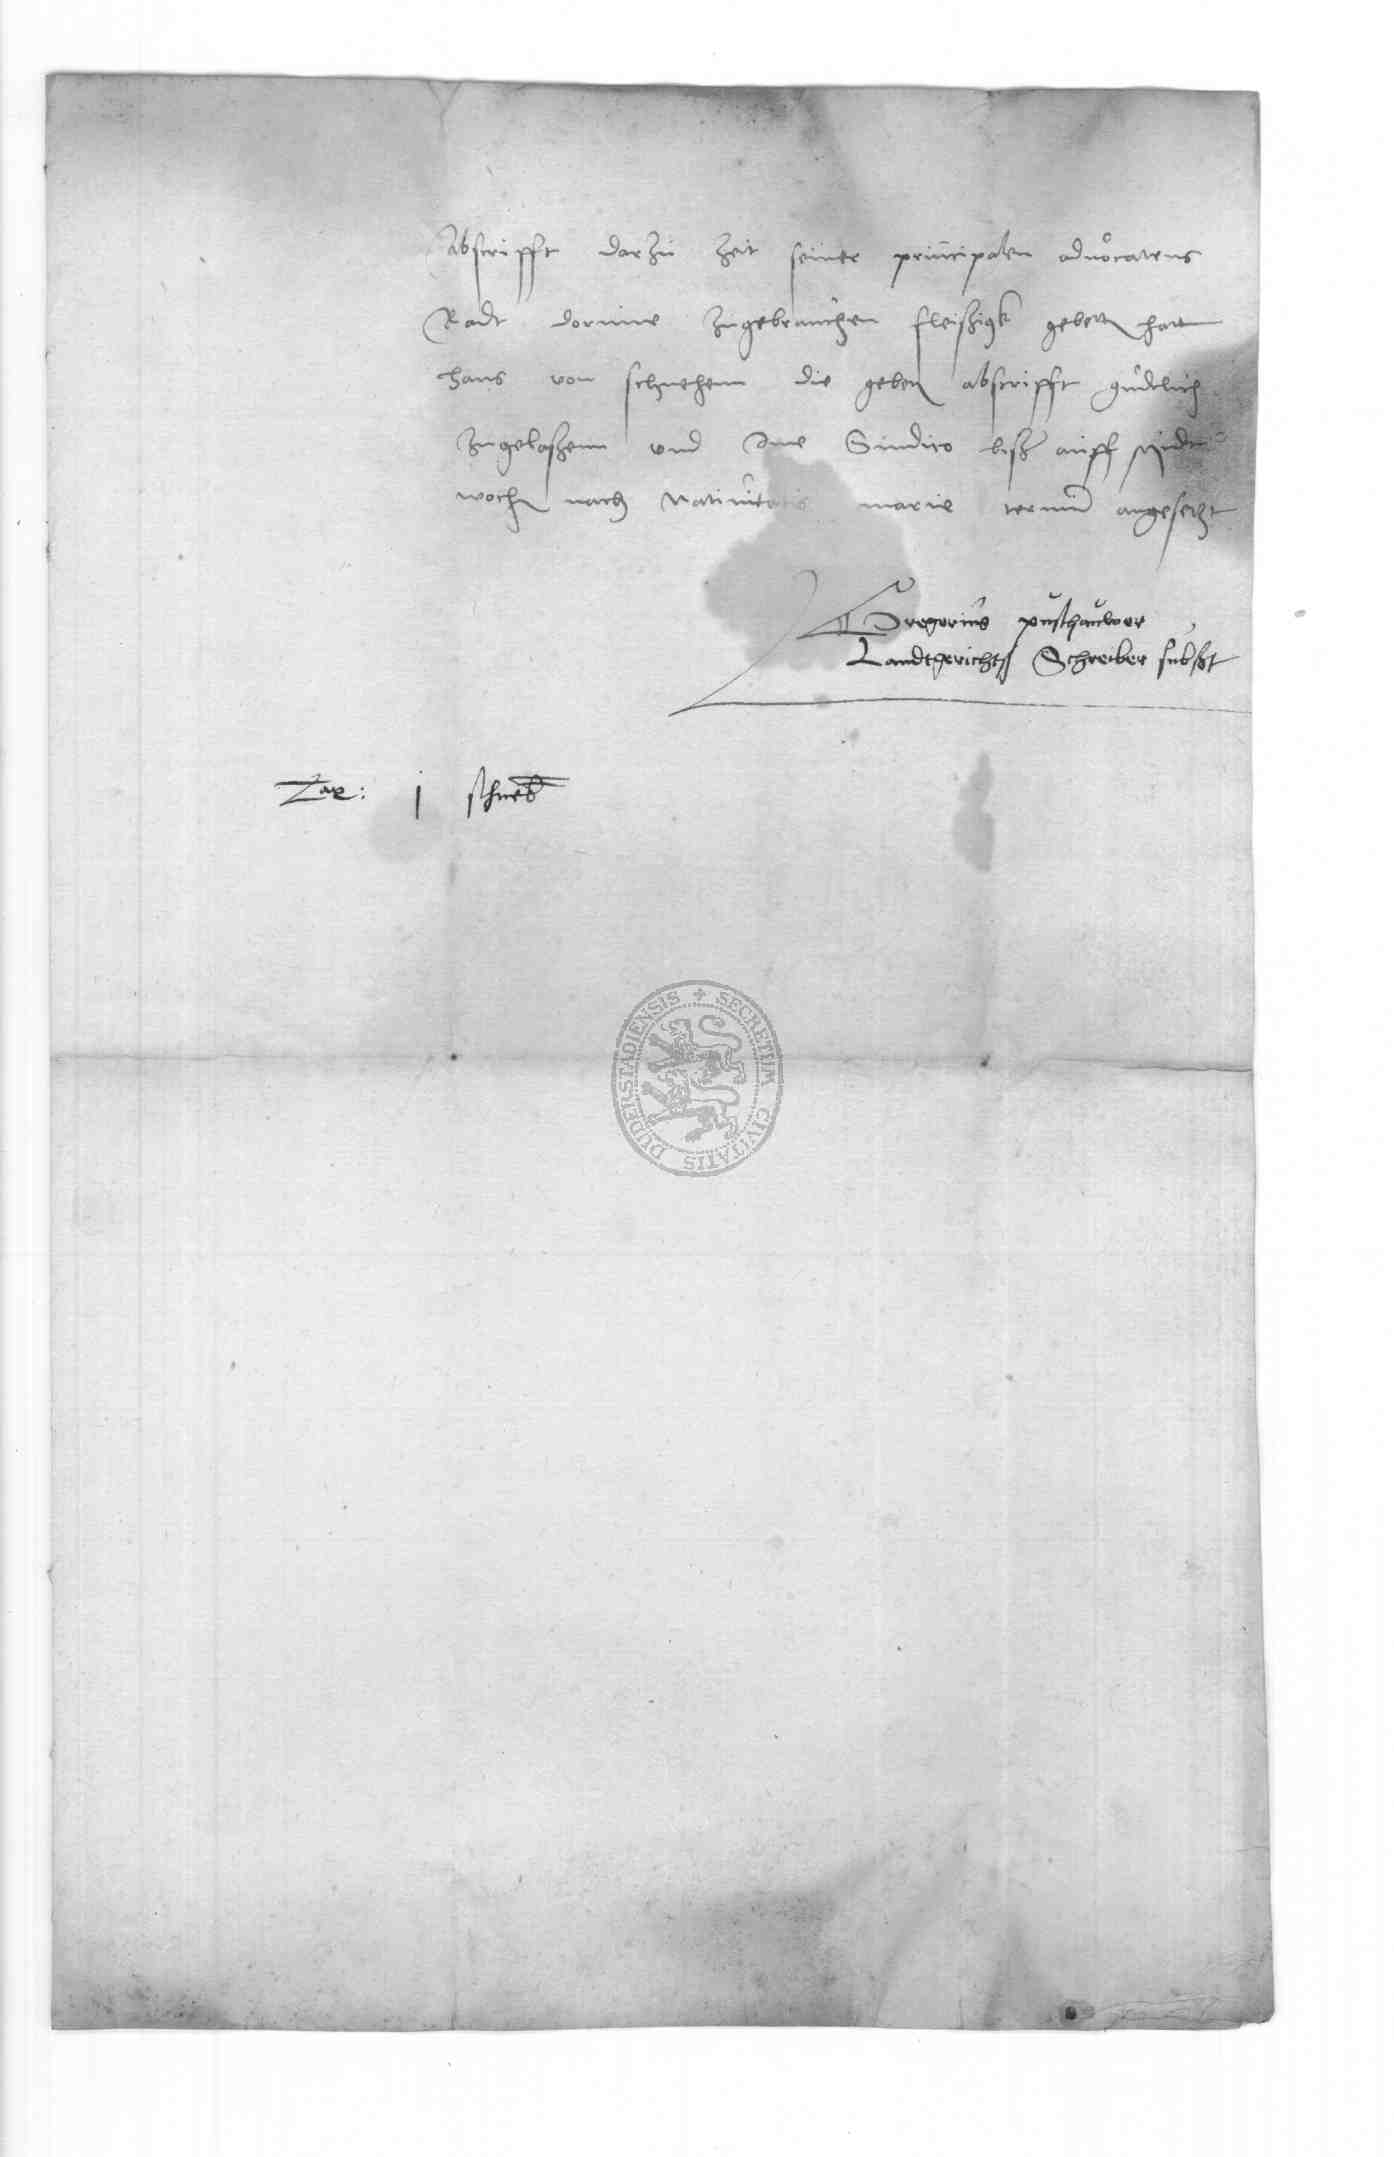 Abscrifft darzu Zeit seiner principalen advocatens
Radt dorinne zugebrauchen fleißigk gebetten hatt
hans von schnehenn die gebetten abscrifft gudtlich
zugelaßenn und dem Sindico biß auff Midt
wochen nach Nativitatis marie termin angesetzt
Gregorius
Landtgerichts Schreiber subst
Tax: j schneb
SECRETUM CIVITATIS DUDERSTADIENSIS